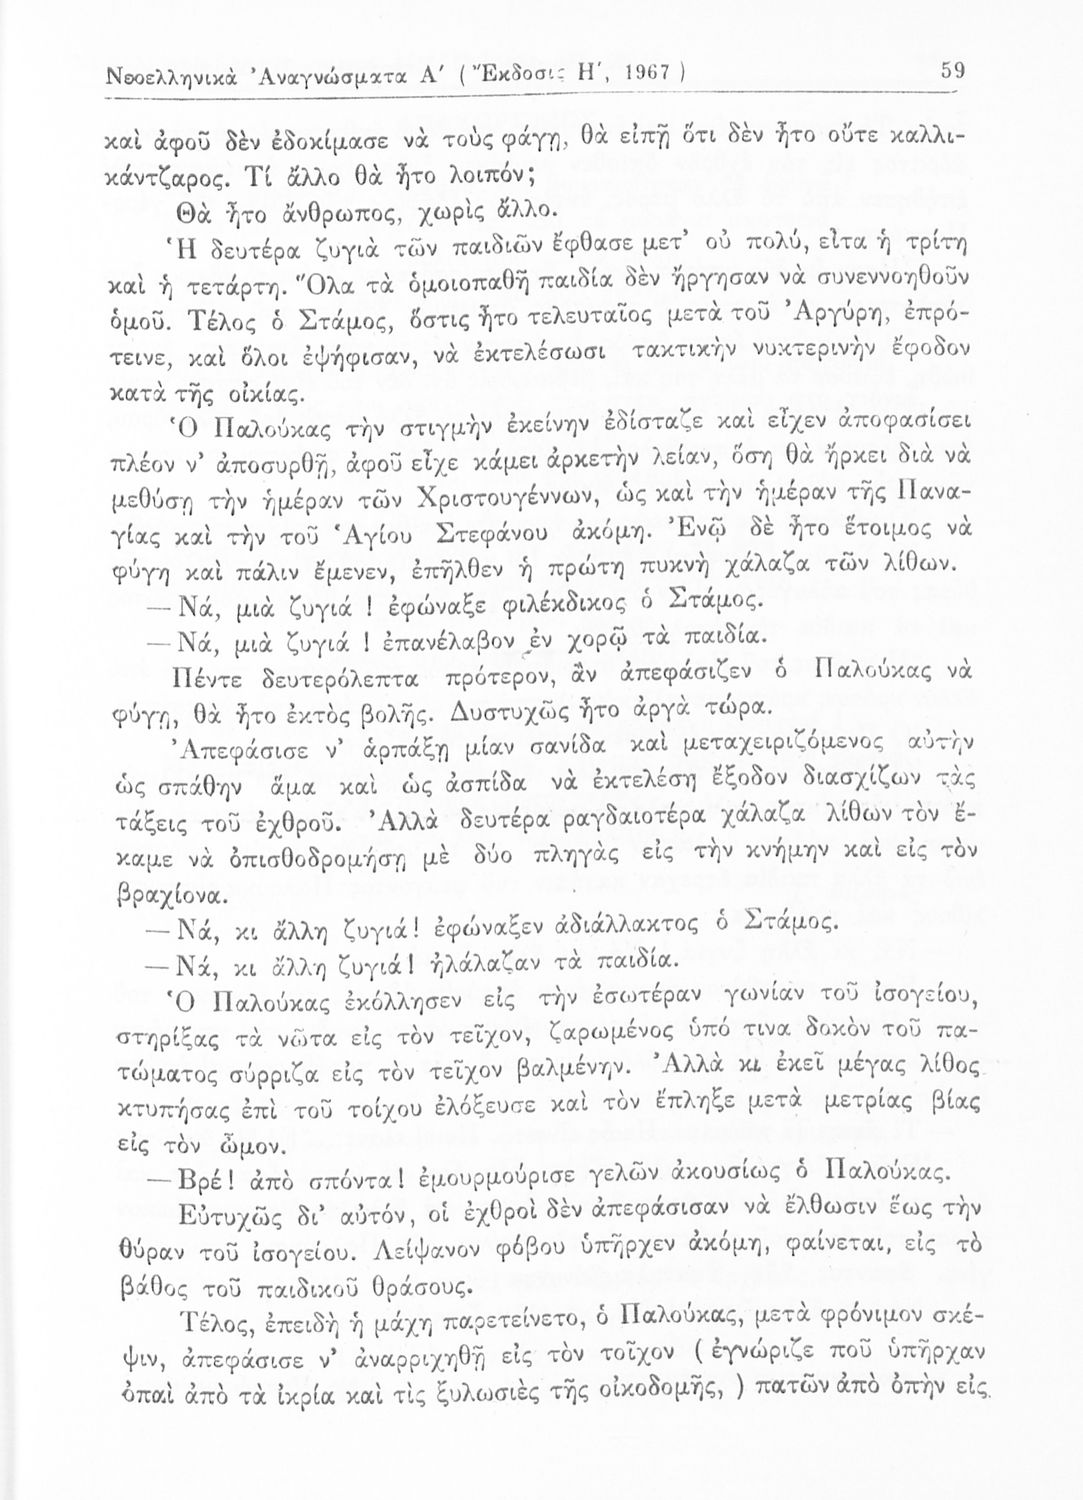 Νεοελληνικὰ Ἀναγνώσματα Α΄ ( Ἔκδοσις Η΄, 1967 ) 59
καὶ ἀφοῦ δὲν ἐδοκίμασε νὰ τοὺς φάγῃ, θὰ εἰπῇ ὅτι δὲν ἦτο οὔτε καλλι-
κάντζαρος. Τί ἄλλο θὰ ἦτο λοιπόν;
Θὰ ἦτο ἄνθρωπος, χωρὶς ἄλλο.
Ἡ δευτέρα ζυγιὰ τῶν παιδιῶν ἔφθασε μετ’ οὐ πολύ, εἶτα ἡ τρίτη
καὶ ἡ τετάρτη. Ὅλα τὰ ὁμοιοπαθῆ παιδία δὲν ἤργησαν νὰ συνεννοηθοῦν
ὁμοῦ. Τέλος ὁ Στάμος, ὅστις ἦτο τελευταῖος μετὰ τοῦ Ἀργύρη, ἐπρό-
τεινε, καὶ ὅλοι ἐψήφισαν, νὰ ἐκτελέσωσι τακτικὴν νυκτερινὴν ἔφοδον
κατὰ τῆς οἰκίας.
Ὁ Παλούκας τὴν στιγμὴν ἐκείνην ἐδίσταζε καὶ εἶχεν ἀποφασίσει
πλέον ν’ ἀποσυρθῇ, ἀφοῦ εἶχε κάμει ἀρκετὴν λείαν, ὅση θὰ ἤρκει διὰ νὰ
μεθύσῃ τὴν ἡμέραν τῶν Χριστουγέννων, ὡς καὶ τὴν ἡμέραν τῆς Πανα-
γίας καὶ τὴν τοῦ Ἁγίου Στεφάνου ἀκόμη. Ἐνῷ δὲ ἦτο ἕτοιμος νὰ
φύγῃ καὶ πάλιν ἔμενεν, ἐπῆλθεν ἡ πρώτη πυκνὴ χάλαζα τῶν λίθων.
— Νά, μιὰ ζυγιά ! ἐφώναξε φιλέκδικος ὁ Στάμος.
— Νά, μιὰ ζυγιά ! ἐπανέλαβον ἐν χορῷ τὰ παιδία.
Πέντε δευτερόλεπτα πρότερον, ἂν ἀπεφάσιζεν ὁ Παλούκας νὰ
φύγῃ, θὰ ἦτο ἐκτὸς βολῆς. Δυστυχῶς ἦτο ἀργὰ τώρα.
Ἀπεφάσισε ν’ ἁρπάξῃ μίαν σανίδα καὶ μεταχειριζόμενος αὐτὴν
ὡς σπάθην ἅμα καὶ ὡς ἀσπίδα νὰ ἐκτελέσῃ ἔξοδον διασχίζων τὰς
τάξεις τοῦ ἐχθροῦ. Ἀλλὰ δευτέρα ραγδαιοτέρα χάλαζα λίθων τὸν ἔ-
καμε νὰ ὀπισθοδρομήσῃ μὲ δύο πληγὰς εἰς τὴν κνήμην καὶ εἰς τὸν
βραχίονα.
— Νά, κι ἄλλη ζυγιά! ἐφώναξεν ἀδιάλλακτος ὁ Στάμος.
— Νά, κι ἄλλη ζυγιά! ἠλάλαζαν τὰ παιδία.
Ὁ Παλούκας ἐκόλλησεν εἰς τὴν ἐσωτέραν γωνίαν τοῦ ἰσογείου,
στηρίξας τὰ νῶτα εἰς τὸν τεῖχον, ζαρωμένος ὑπό τινα δοκὸν τοῦ πα-
τώματος σύρριζα εἰς τὸν τεῖχον βαλμένην. Ἀλλὰ κι ἐκεῖ μέγας λίθος
κτυπήσας ἐπὶ τοῦ τοίχου ἐλόξευσε καὶ τὸν ἔπληξε μετὰ μετρίας βίας
εἰς τὸν ὦμον.
— Βρέ! ἀπὸ σπόντα! ἐμουρμούρισε γελῶν ἀκουσίως ὁ Παλούκας.
Εὐτυχῶς δι’ αὐτόν, οἱ ἐχθροὶ δὲν ἀπεφάσισαν νὰ ἔλθωσιν ἕως τὴν
θύραν τοῦ ἰσογείου. Λείψανον φόβου ὑπῆρχεν ἀκόμη, φαίνεται, εἰς τὸ
βάθος τοῦ παιδικοῦ θράσους.
Τέλος, ἐπειδὴ ἡ μάχη παρετείνετο, ὁ Παλούκας, μετὰ φρόνιμον σκέ-
ψιν, ἀπεφάσισε ν’ ἀναρριχηθῇ εἰς τὸν τοῖχον ( ἐγνώριζε ποῦ ὑπῆρχαν
ὀπαὶ ἀπὸ τὰ ἰκρία καὶ τὶς ξυλωσιὲς τῆς οἰκοδομῆς, ) πατῶν ἀπὸ ὀπὴν εἰς